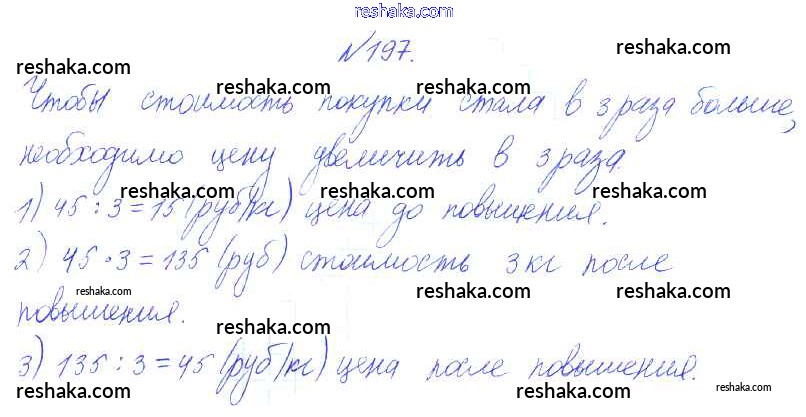 reshaka.com
№197.
reshaka.com reshaka.com
Чтобы стоимость покупки стала в 3 раза больше,
reshaka.com reshaka.com
необходимо цену увеличить в 3 раза.
reshaka.com reshaka.com
1) 45 : 3 = 15 (руб/кг) цена до повышения.
reshaka.com reshaka.com
2) 45 · 3 = 135 (руб) стоимость 3 кг после
reshaka.com reshaka.com reshaka.com
повышения.
reshaka.com reshaka.com
3) 135 : 3 = 45 (руб/кг) цена после повышения.
reshaka.com reshaka.com reshaka.com